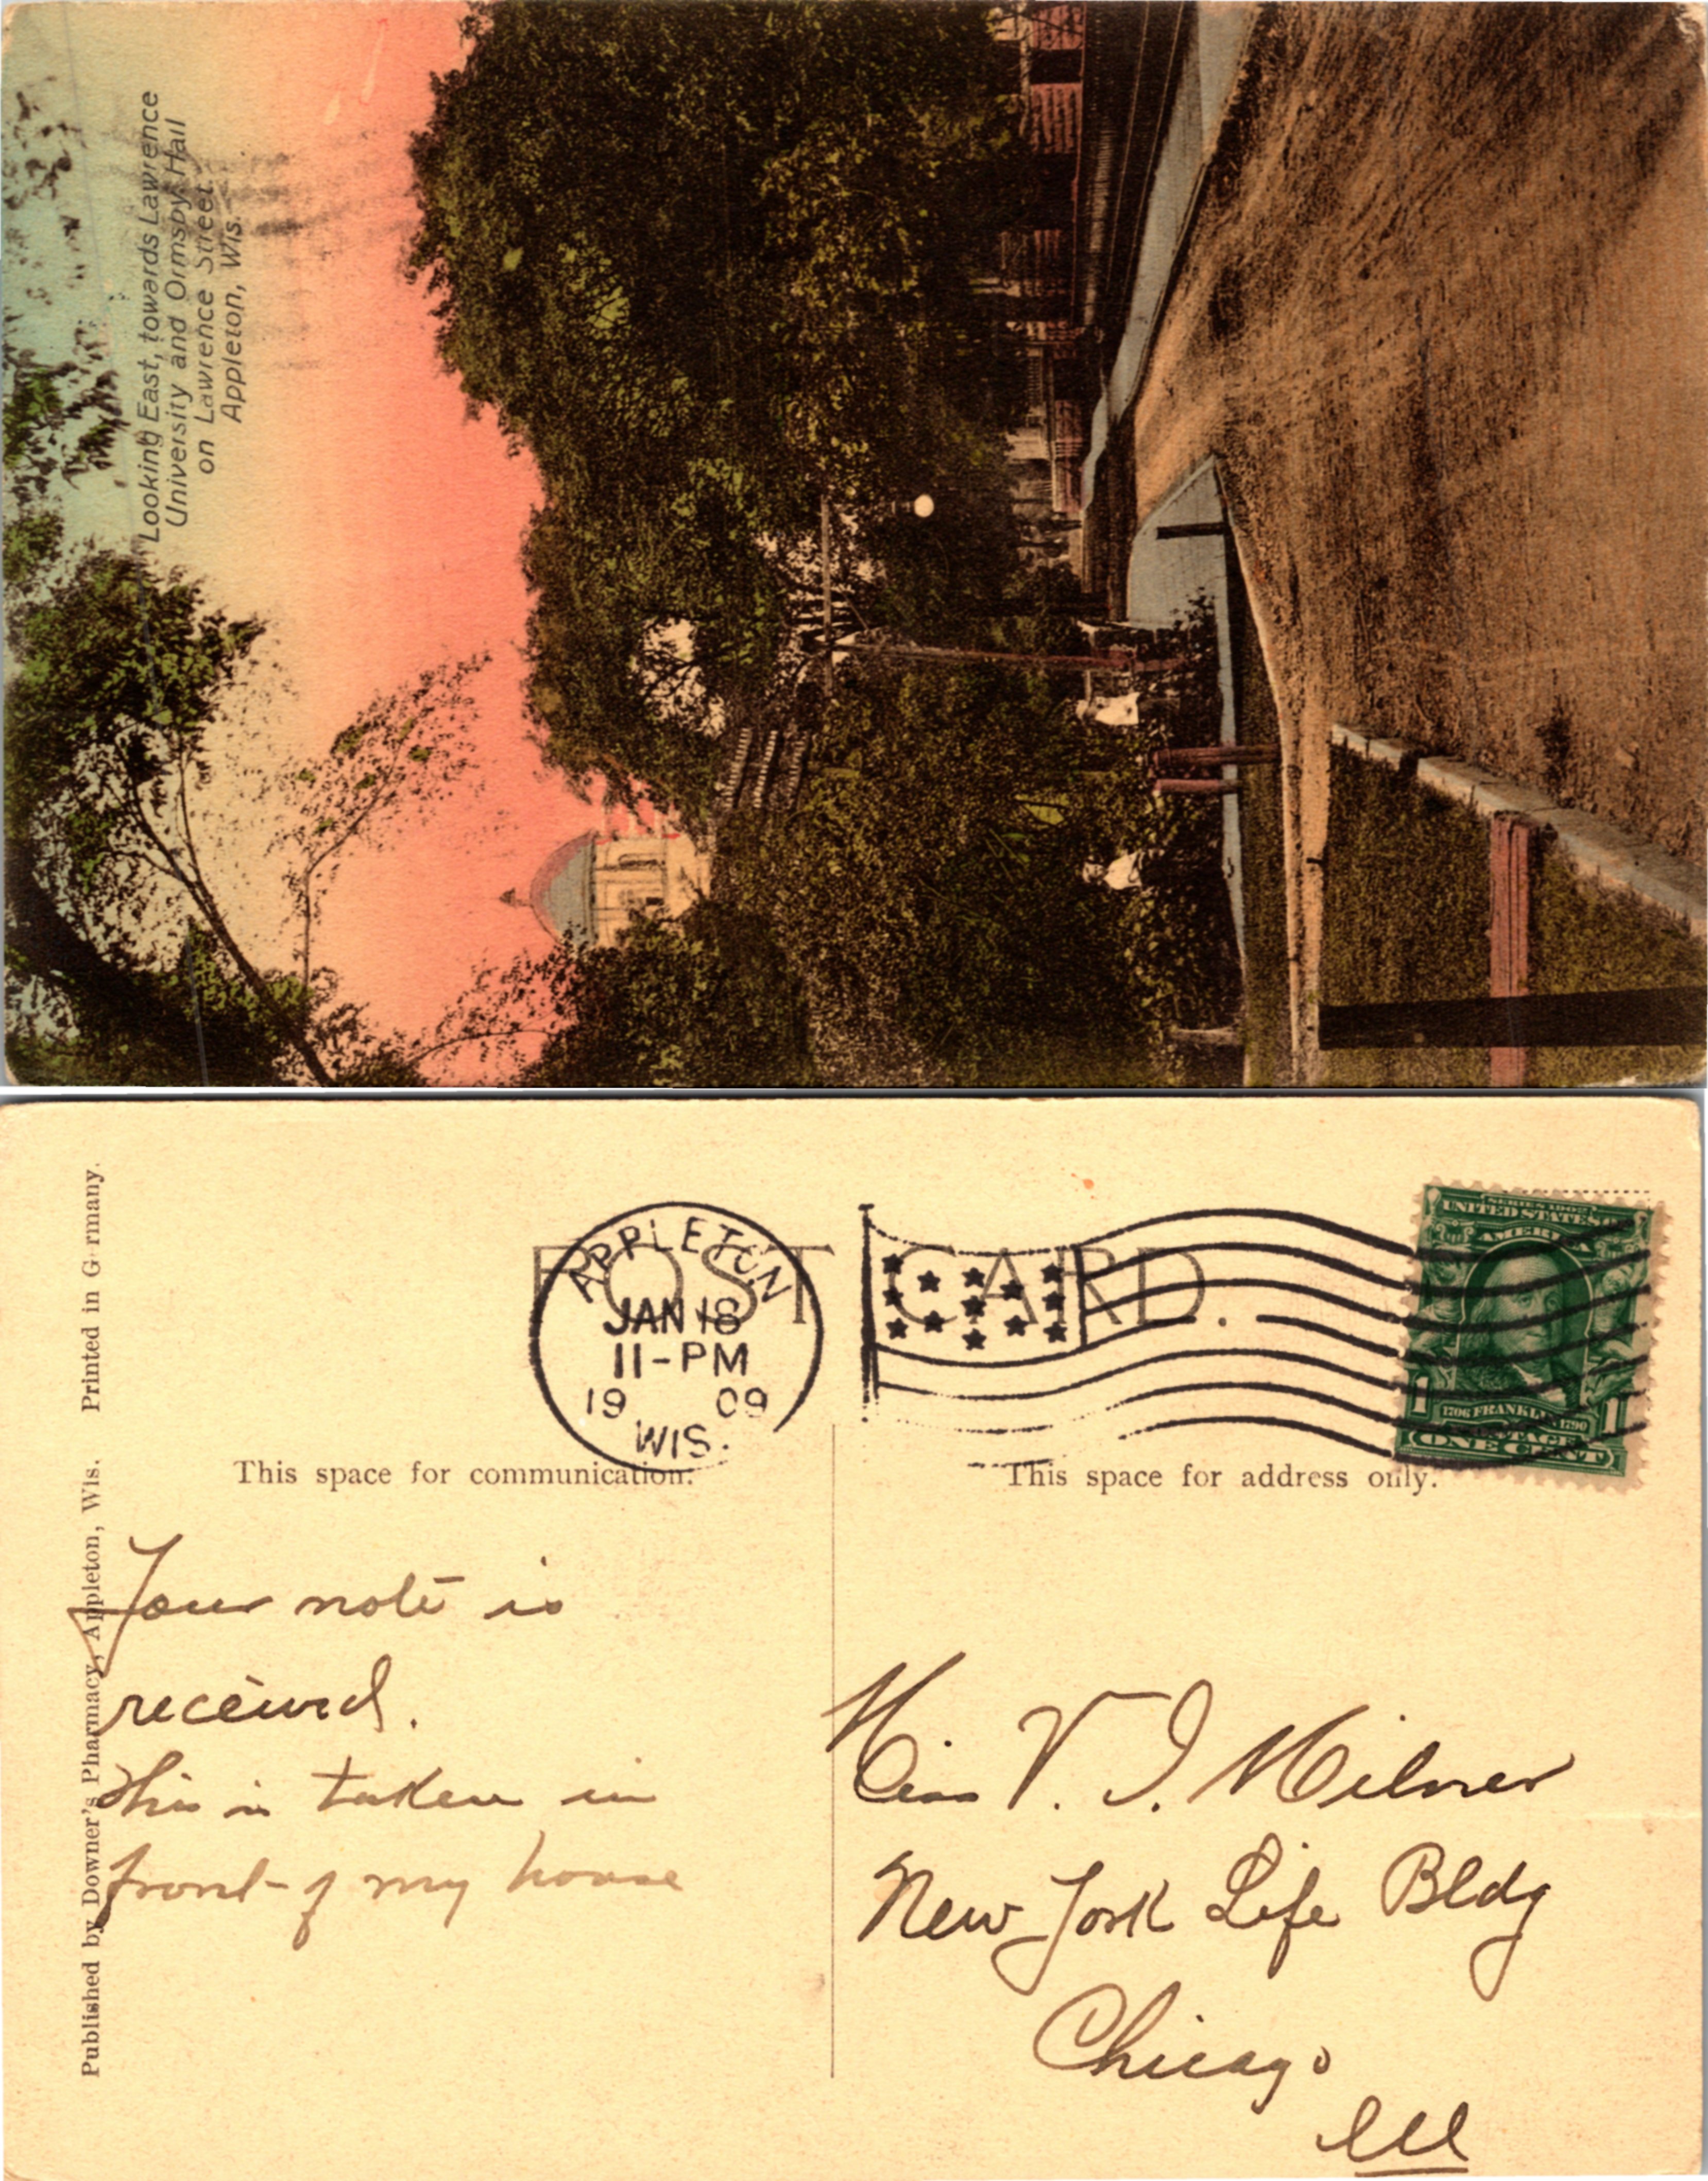 Looking East, towards Lawrence
University and Ormsby Hall
on Lawrence Street.
Appleton, Wis.
Published by Downer's Pharmacy, Appleton, Wis. Printed in Germany.
POST CARD.
APPLETON
JAN 18
11-PM
1909
WIS.
SERIES 1902
UNITED STATES OF
AMERICA
1706 FRANKLIN 1790
POSTAGE
1 ONE CENT 1
This space for communication.
This space for address only.
Your note is
received.
This is taken in
front of my house
Miss V. I. Milner
New York Life Bldg
Chicago
Ill